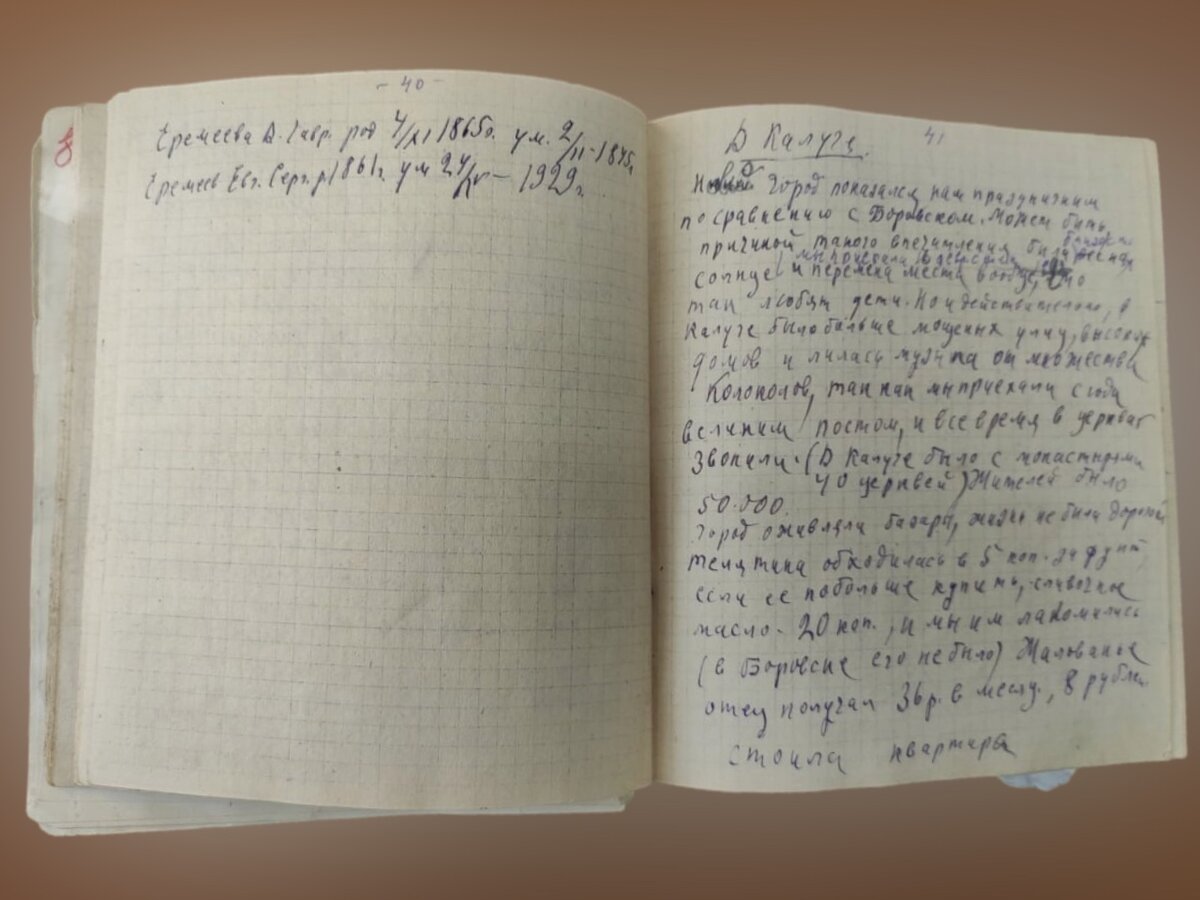 - 40 -
Еремеева В. Гавр. род 4/XI 1865г. ум. 2/II - 1945г
Еремеев Евг. Серг. р. 1861г. ум 24/IV - 1929г.
В Калуге.
41
Новый город показался нам праздничним
по сравнению с Боровском. Может быть,
причиной такого впечатления было весеннее
солнце мы приехали в и перемена места вообще, что
так любят дети. Но и действительно, в
Калуге было больше мощеных улиц, высоких
домов и лилась музыка от множества
колоколов, так как мы приехали сюда
великим постом, и все время в церквах
звонили. (В Калуге было с монастырями
40 церквей) Жителей было
50.000.
Город оживляли базары, жизнь не была дорогой
телятина обходилась в 5 коп. за фунт,
если ее побольше купить, сливочное
масло - 20 коп., и мы им лакомились
(в Боровске его не было) Жалованье
отец получал 36 р. в месяц, 8 рублей
стоила квартира